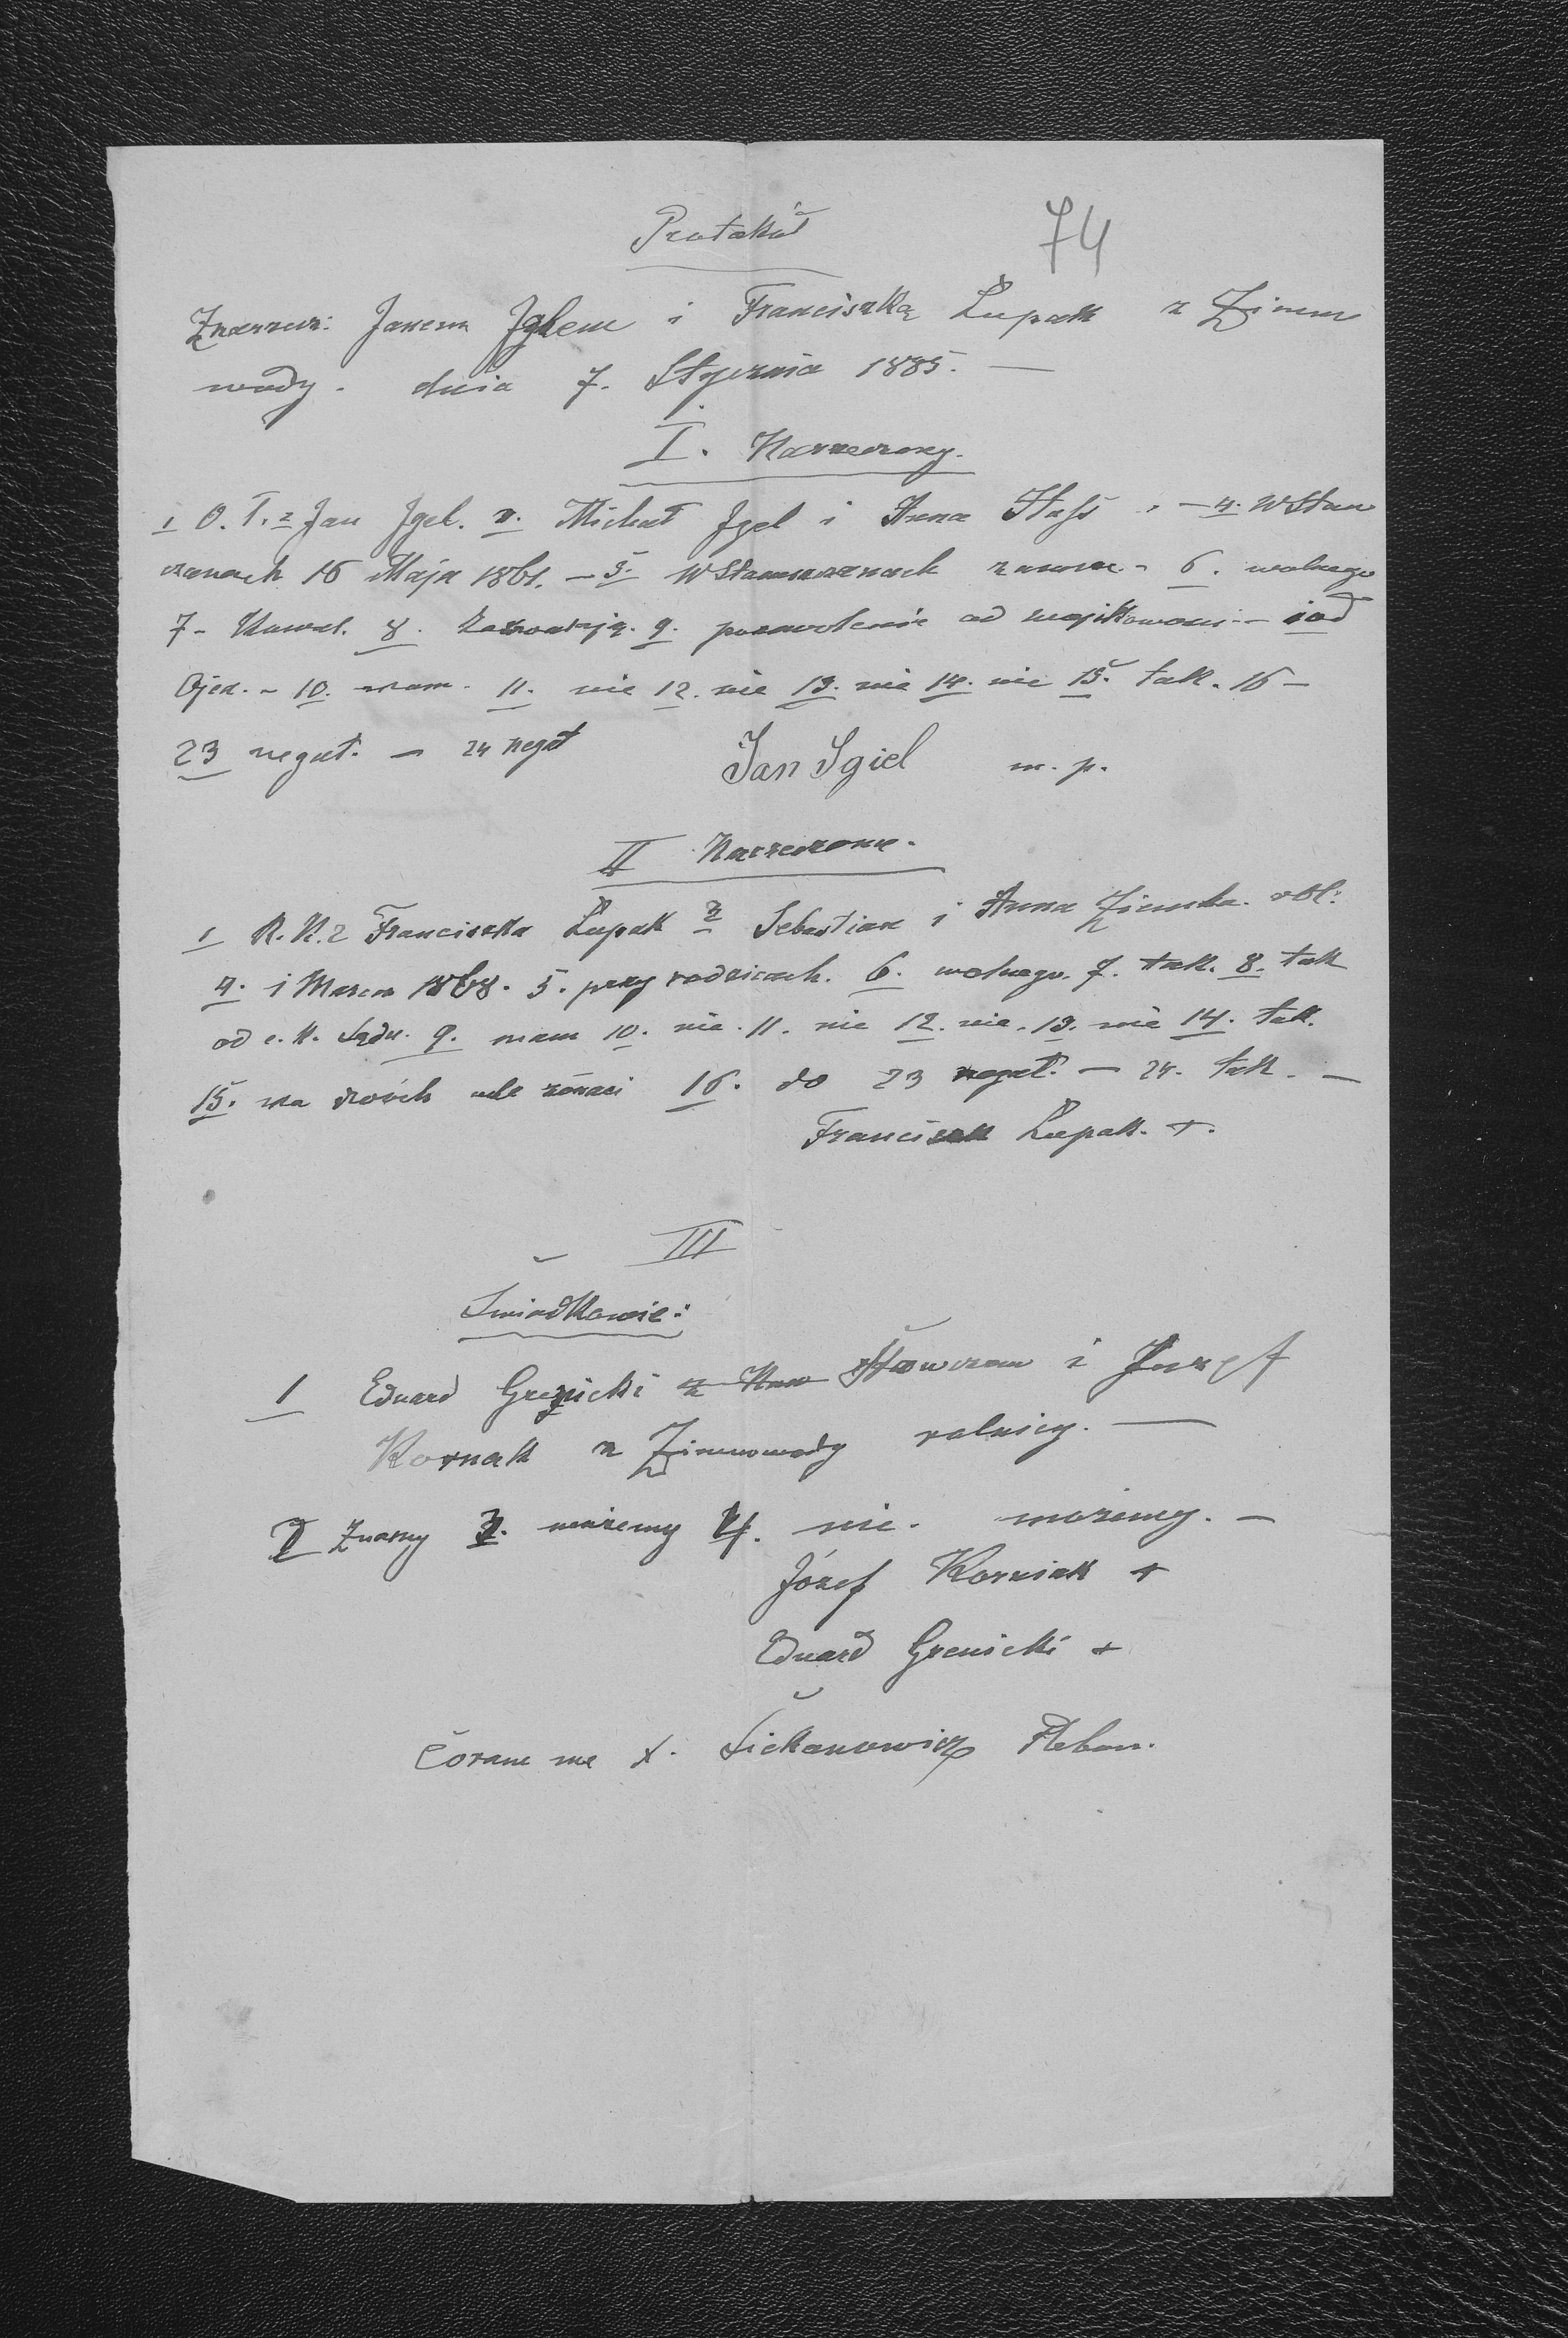 Protokół
74
Znarzecz: Janem Jglem i Franciszką Łupak z Zimnu
wody. dnia 7. Stycznia 1885. —
I. Narzeczony.
1 O. T. 2 Jan Jgel. 3. Michał Jgel i Anna Haſs . — 4. W Staw
czanach 16 Maja 1861. — 5. W Stawczanach zawsze - 6. wolnego
7 - Kawal. 8. 9. pozwolenie od wojskowości — i od
Ojca. - 10. mam. 11. nie 12. nie 13. nie 14. nie 15. tak. 16 —
23 negat. — 24 negat Jan Jgiel m. p.
II Narzeczona.
1 R. K. 2 Franciszka Łupak 3 Sebastian i Anna Ziemba. obl:
4. 1 Marca 1868. 5. przy rodzicach. 6. wolnego. 7. tak. 8. tak
od c. k. Sądu. 9. mam 10. nie. 11. nie 12. nie. 13. nie 14. tak.
15. na 16. do 23 negat. — 24. tak. —
Franciszk Łupak. +.
III
Świadkowie:
1 Eduard Grenicki z Naw Stawczan i Jozef
Kornak z Zimnowody rolnicy. —
2 Znamy 3. możemy 4. nie. możemy. —
Józef Korniak +
Eduard Grenicki +
Coram me X. Sickanowicz Pleban.